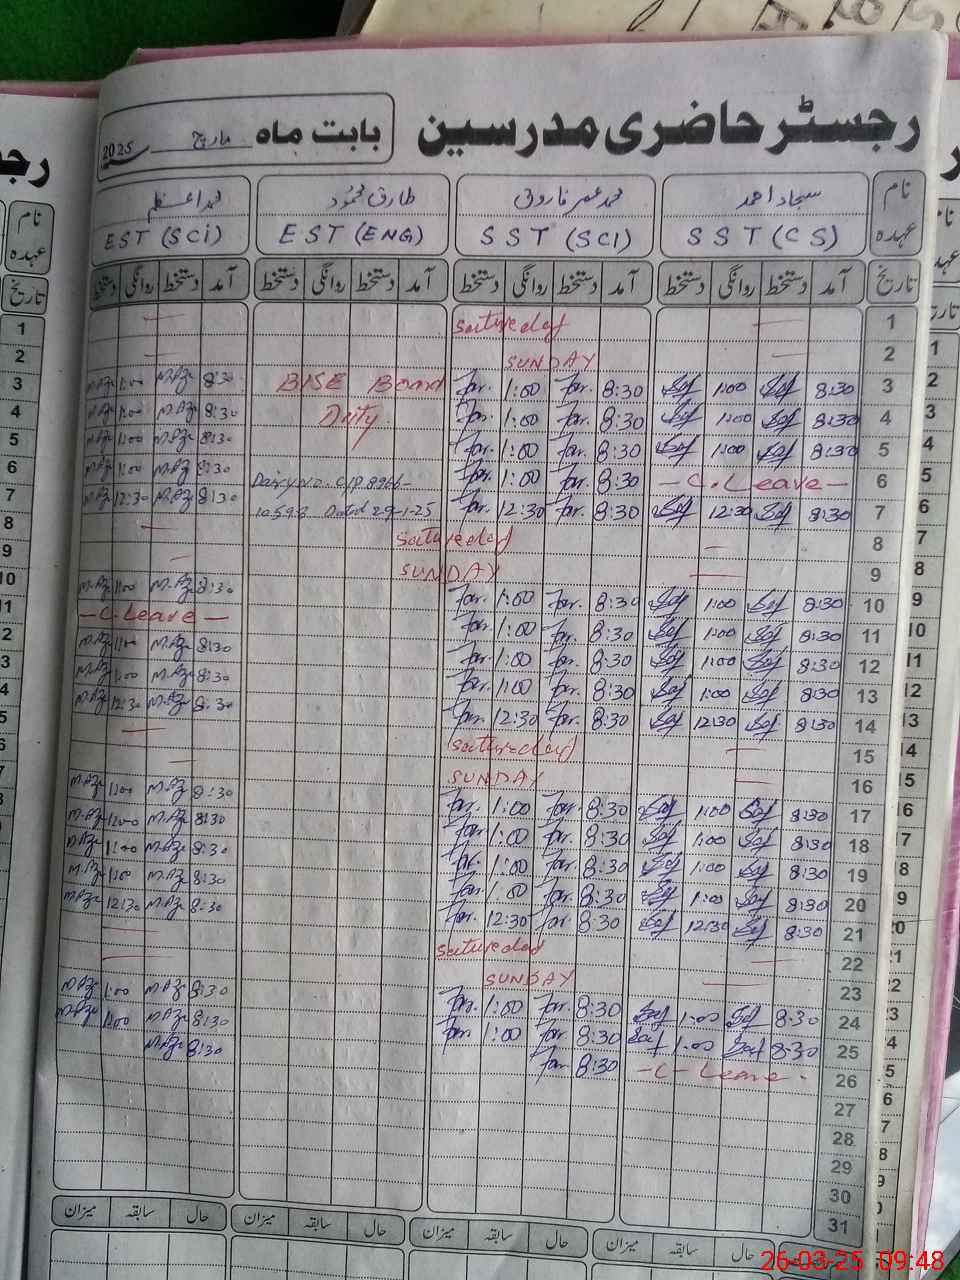 رجسٹر حاضری مدرسین بابت ماہ مارچ 2025
نام سجاد احمد محمد عمر فاروق طارق محمود محمد اعظم
عہدہ SST (CS) SST (SCI) EST (ENG) EST (SCi)
تاریخ آمد دستخط روانگی دستخط آمد دستخط روانگی دستخط آمد دستخط روانگی دستخط آمد دستخط روانگی دستخط
1 — saturedaf —
2 — SUNDAY —
3 8:30 1:00 8:30 Far. 1:00 Far. BISE Board 8:30 M.Az 1:00 M.Az
4 8:30 1:00 8:30 Far. 1:00 Far. Duty 8:30 M.Az 1:00 M.Az
5 8:30 1:00 8:30 Far. 1:00 Far. 8:30 M.Az 1:00 M.Az
6 — C. Leave — 8:30 Far. 1:00 Far. 8:30 M.Az 1:00 M.Az
7 8:30 12:30 8:30 Far. 12:30 Far. 10593 Dated 29-1-25 8:30 M.Az 12:30 M.Az
8 — saturedaf —
9 — SUNDAY —
10 8:30 1:00 8:30 Far. 1:00 Far. 8:30 M.Az 1:00 M.Az
11 8:30 1:00 8:30 Far. 1:00 Far. — C. Leave —
12 8:30 1:00 8:30 Far. 1:00 Far. 8:30 M.Az 1:00 M.Az
13 8:30 1:00 8:30 Far. 1:00 Far. 8:30 M.Az 1:00 M.Az
14 8:30 12:30 8:30 Far. 12:30 Far. 8:30 M.Az 12:30 M.Az
15 — saturedaf —
16 — SUNDAY —
17 8:30 1:00 8:30 Far. 1:00 Far. 8:30 M.Az 1:00 M.Az
18 8:30 1:00 8:30 Far. 1:00 Far. 8:30 M.Az 1:00 M.Az
19 8:30 1:00 8:30 Far. 1:00 Far. 8:30 M.Az 1:00 M.Az
20 8:30 1:00 8:30 Far. 1:00 Far. 8:30 M.Az 1:00 M.Az
21 8:30 12:30 8:30 Far. 12:30 Far. 8:30 M.Az 12:30 M.Az
22 — saturedad —
23 — SUNDAY —
24 8:30 1:00 8:30 Far. 1:00 Far. 8:30 M.Az 1:00 M.Az
25 8:30 1:00 8:30 Far. 1:00 Far. 8:30 M.Az 1:00 M.Az
26 — C - Leave - 8:30 Far 8:30 M.Az
27
28
29
30
31
حال سابقہ میزان حال سابقہ میزان حال سابقہ میزان حال سابقہ میزان
26-03-25 09:48